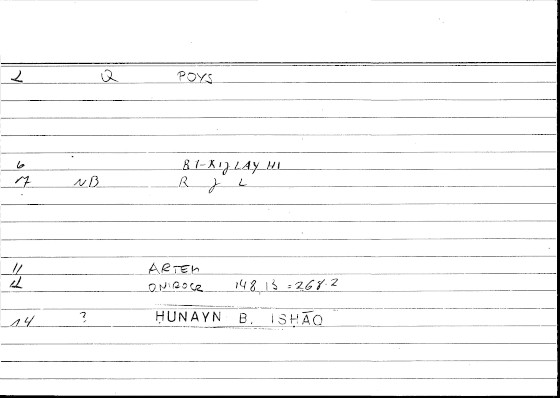 2 Q POYS
6 BI-RIJLAYHI
17 NB R J L
11 ARTEM
12 ONIROCR 148,13 = 268.2
14 ? ḤUNAYN B. ISḤĀQ